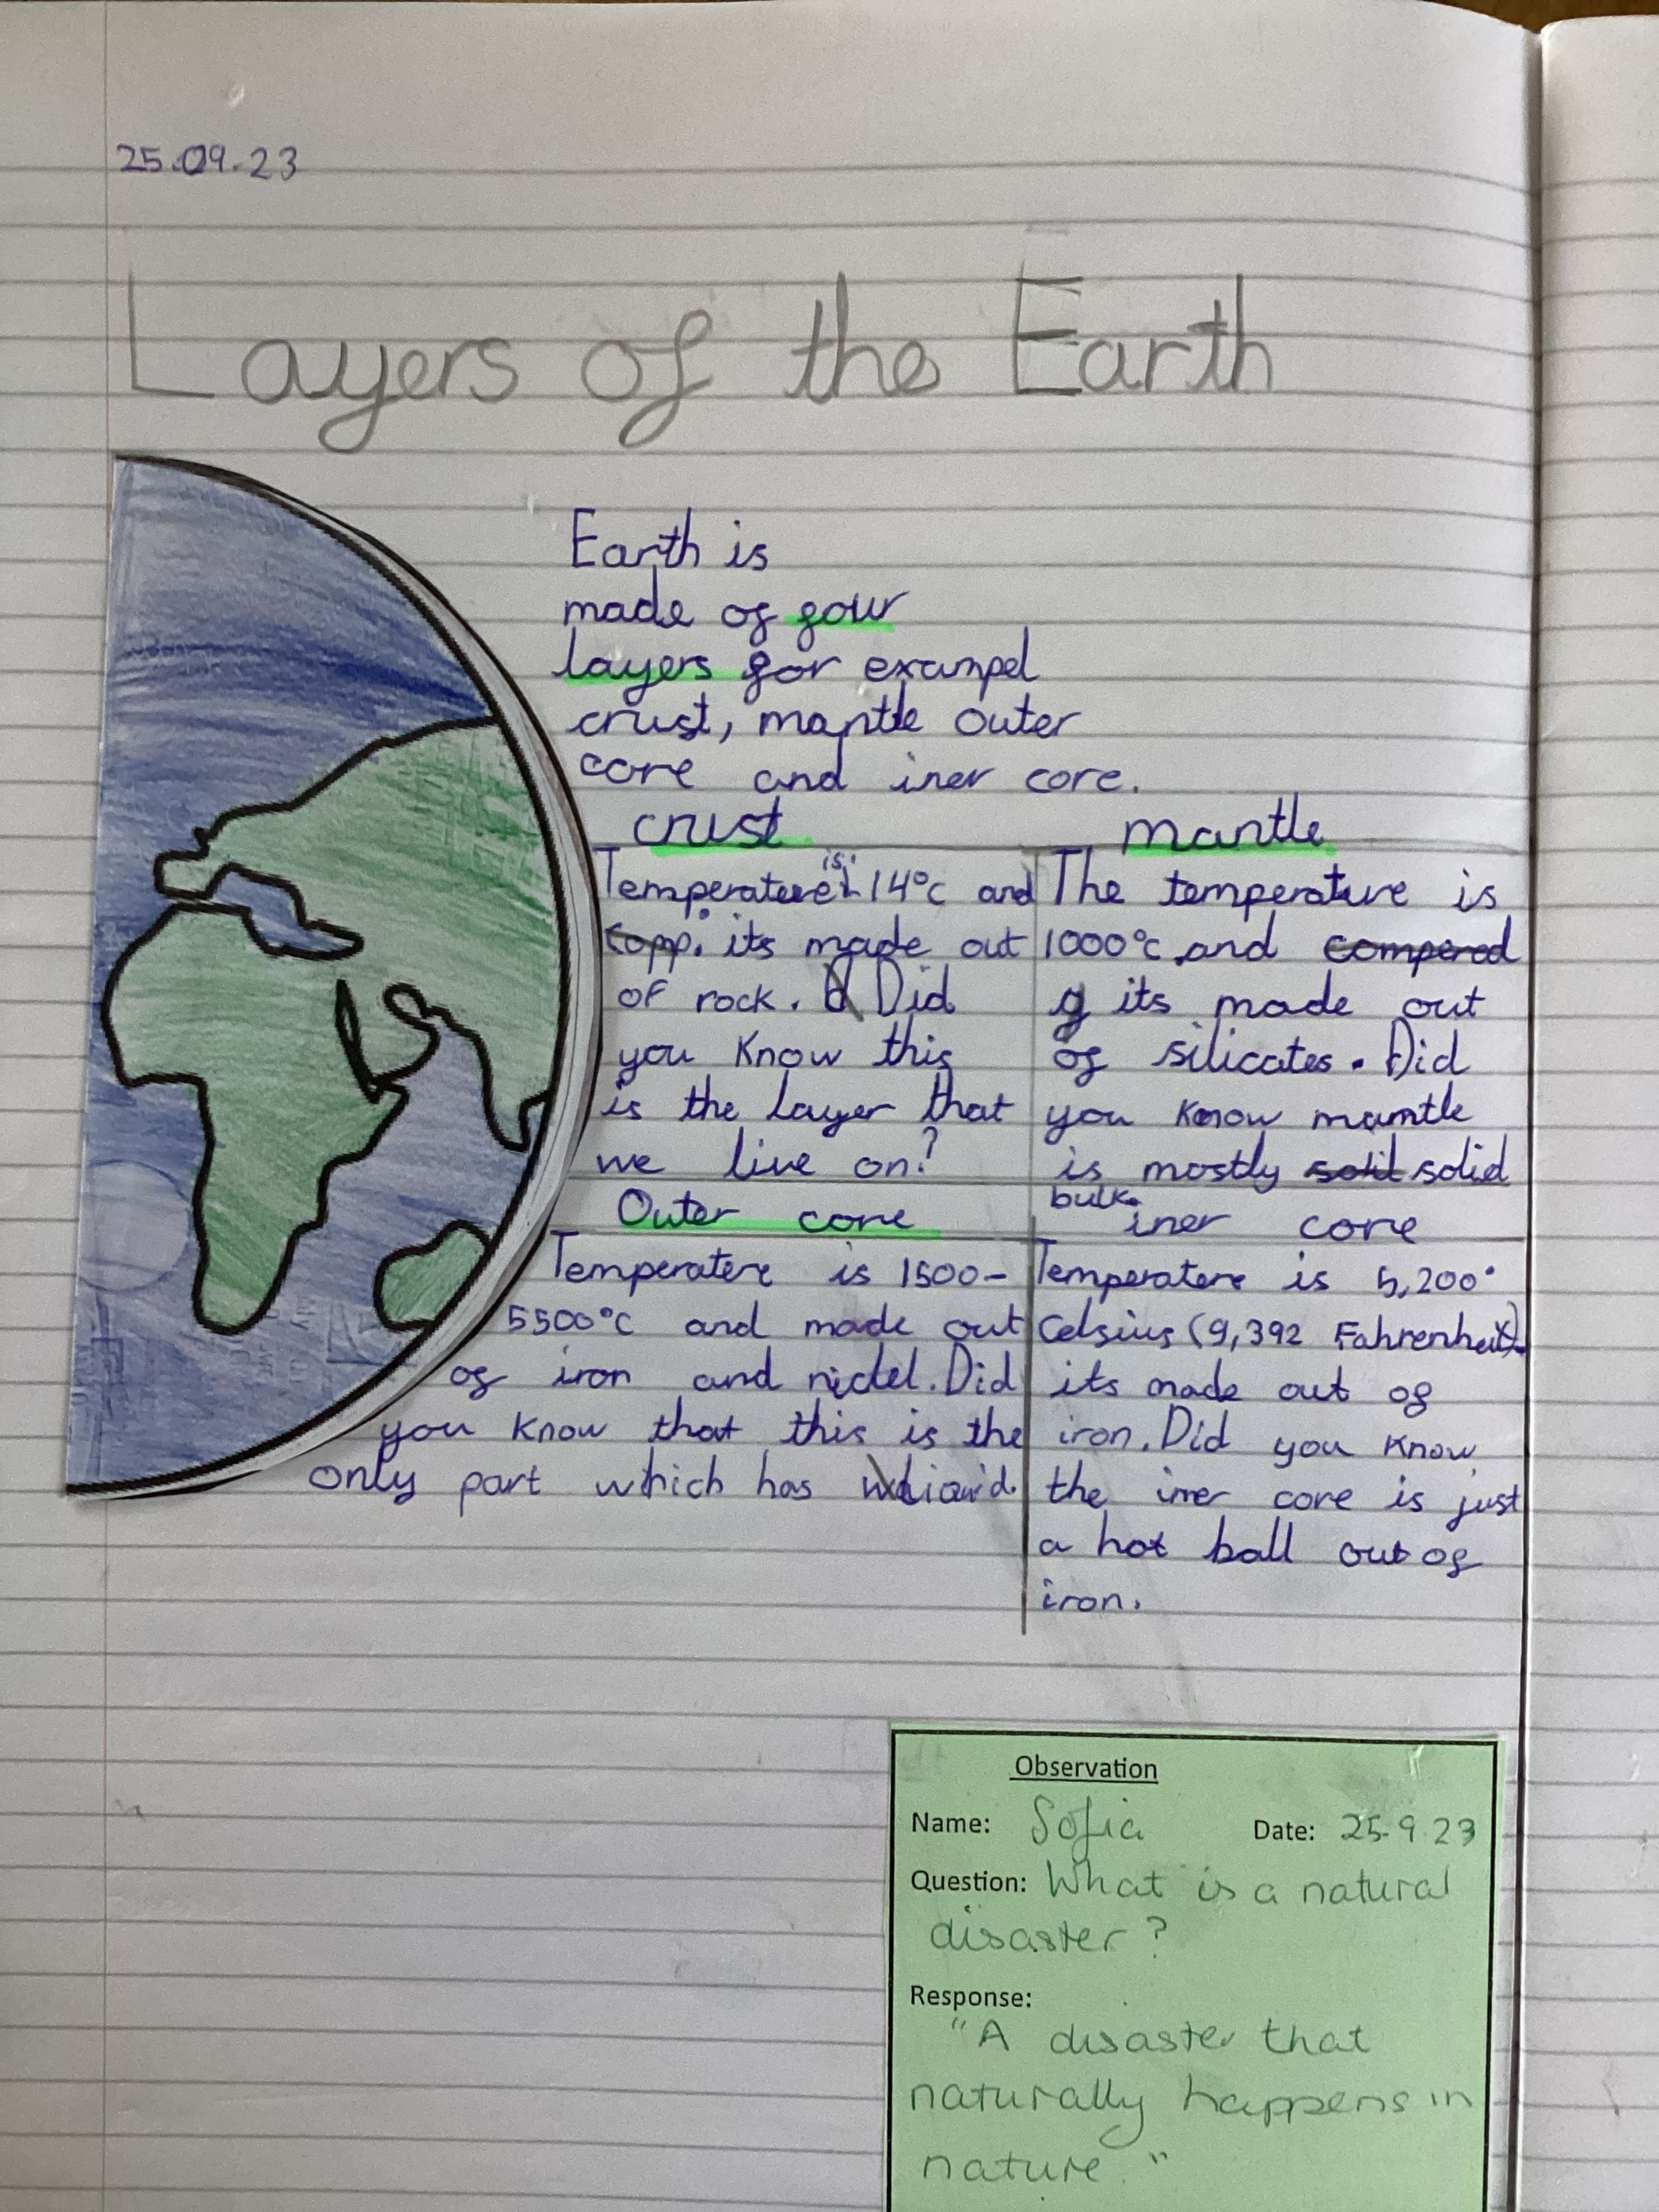 25.09.23
Layers of the Earth
Earth is
made of four
layers for exampel
crust, mantle outer
core and iner core.
crust
Temperatere is 14°c and
copp. its made out
of rock. Did
you know this
is the layer that
we live on?
mantle
The temperature is
1000°c and compered
its made out
of silicates. Did
you know mantle
is mostly solil solid
bulk.
Outer core
Temperatere is 1500-
5500°c and made out
of iron and nickel. Did
you know that this is the
only part which has
iner core
Temperatere is 5,200°
Celsius (9,392 Fahrenheit)
its made out of
iron. Did you know
the iner core is just
a hot ball out of
iron.
Observation
Name: Sofia Date: 25.9.23
Question: What is a natural
disaster?
Response:
"A disaster that
naturally happens in
nature."